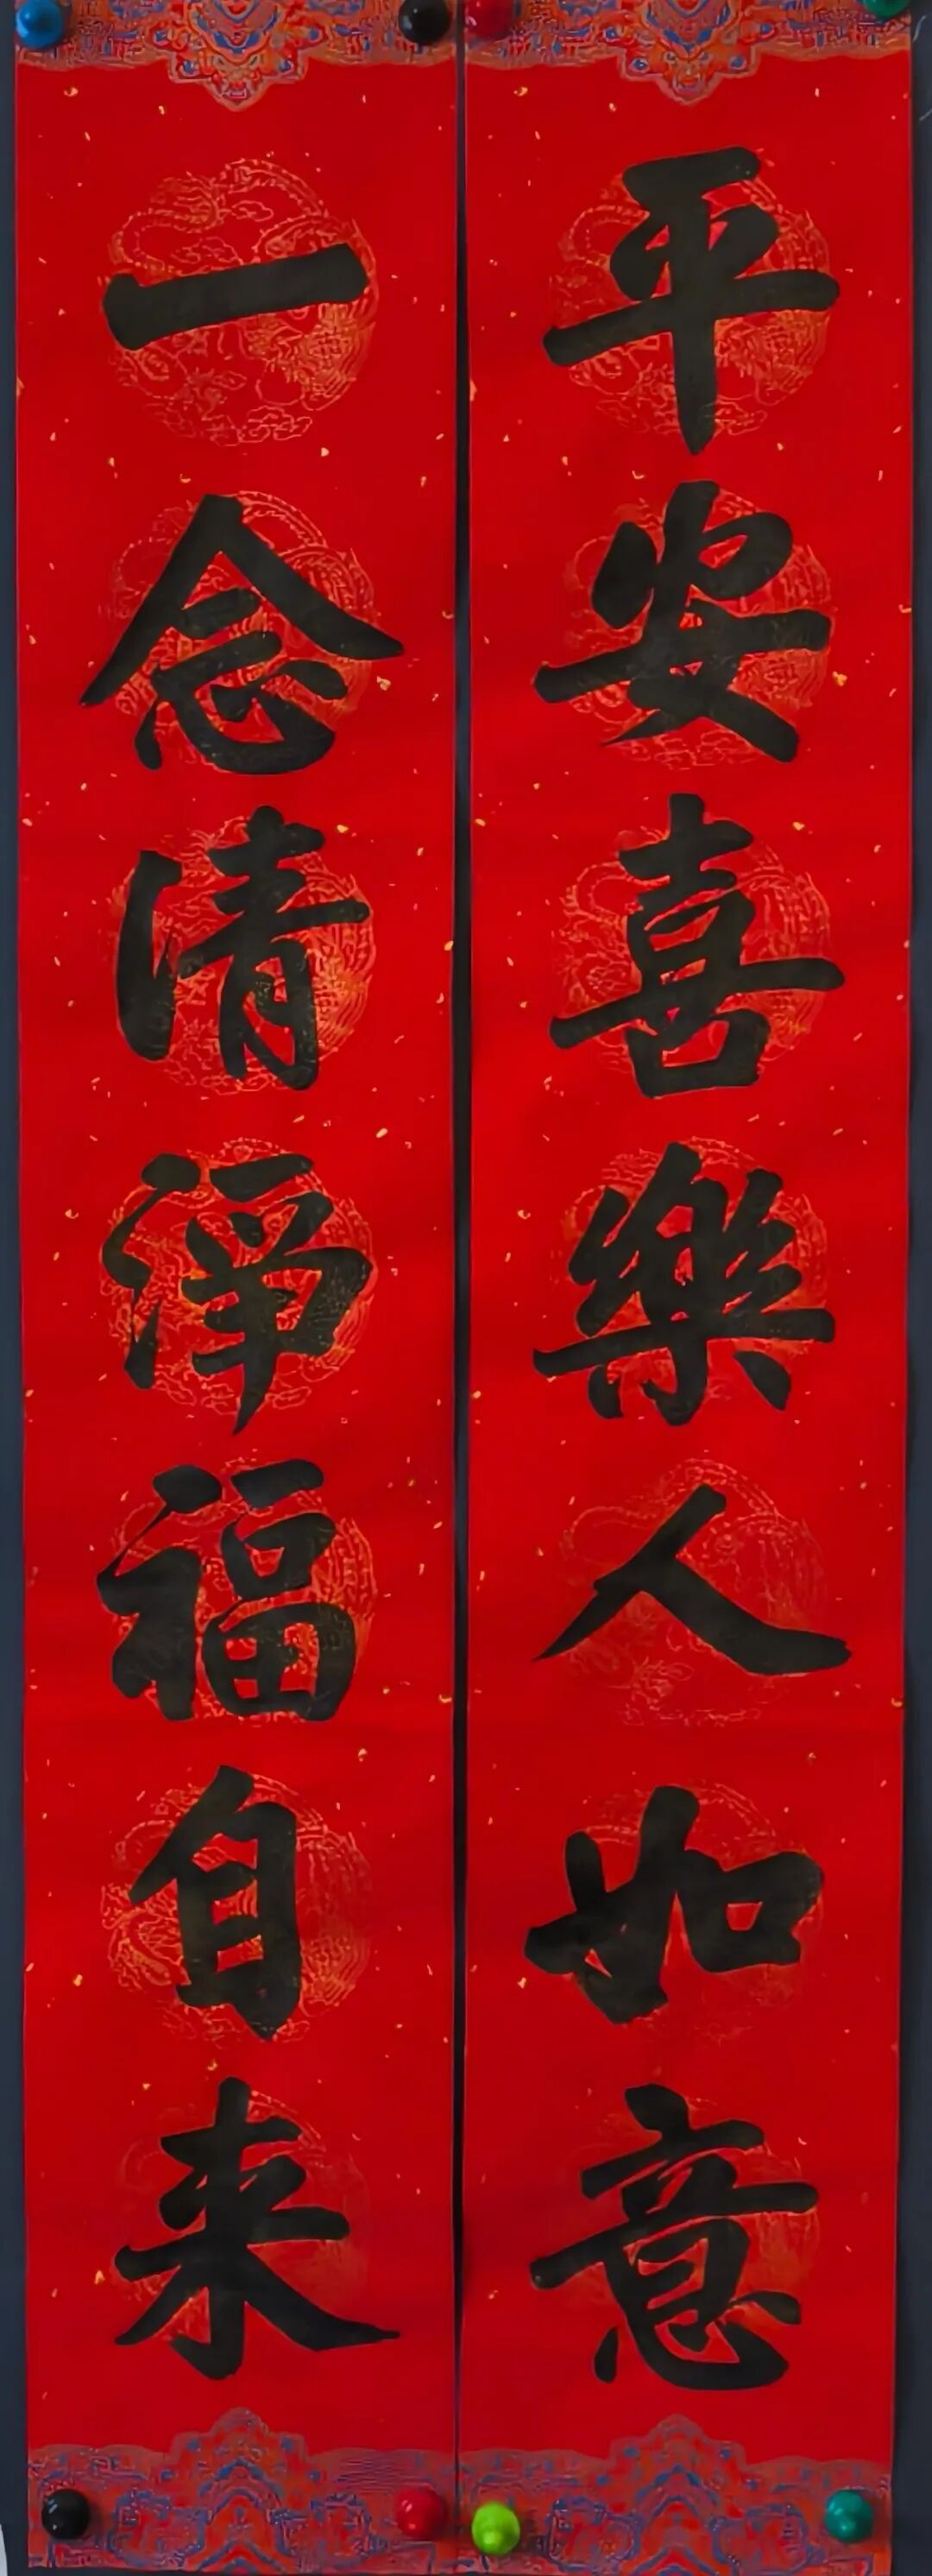 平安喜樂人如意
一念清淨福自来